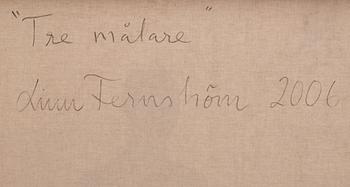 "Tre målare"
Linn Fernström 2006